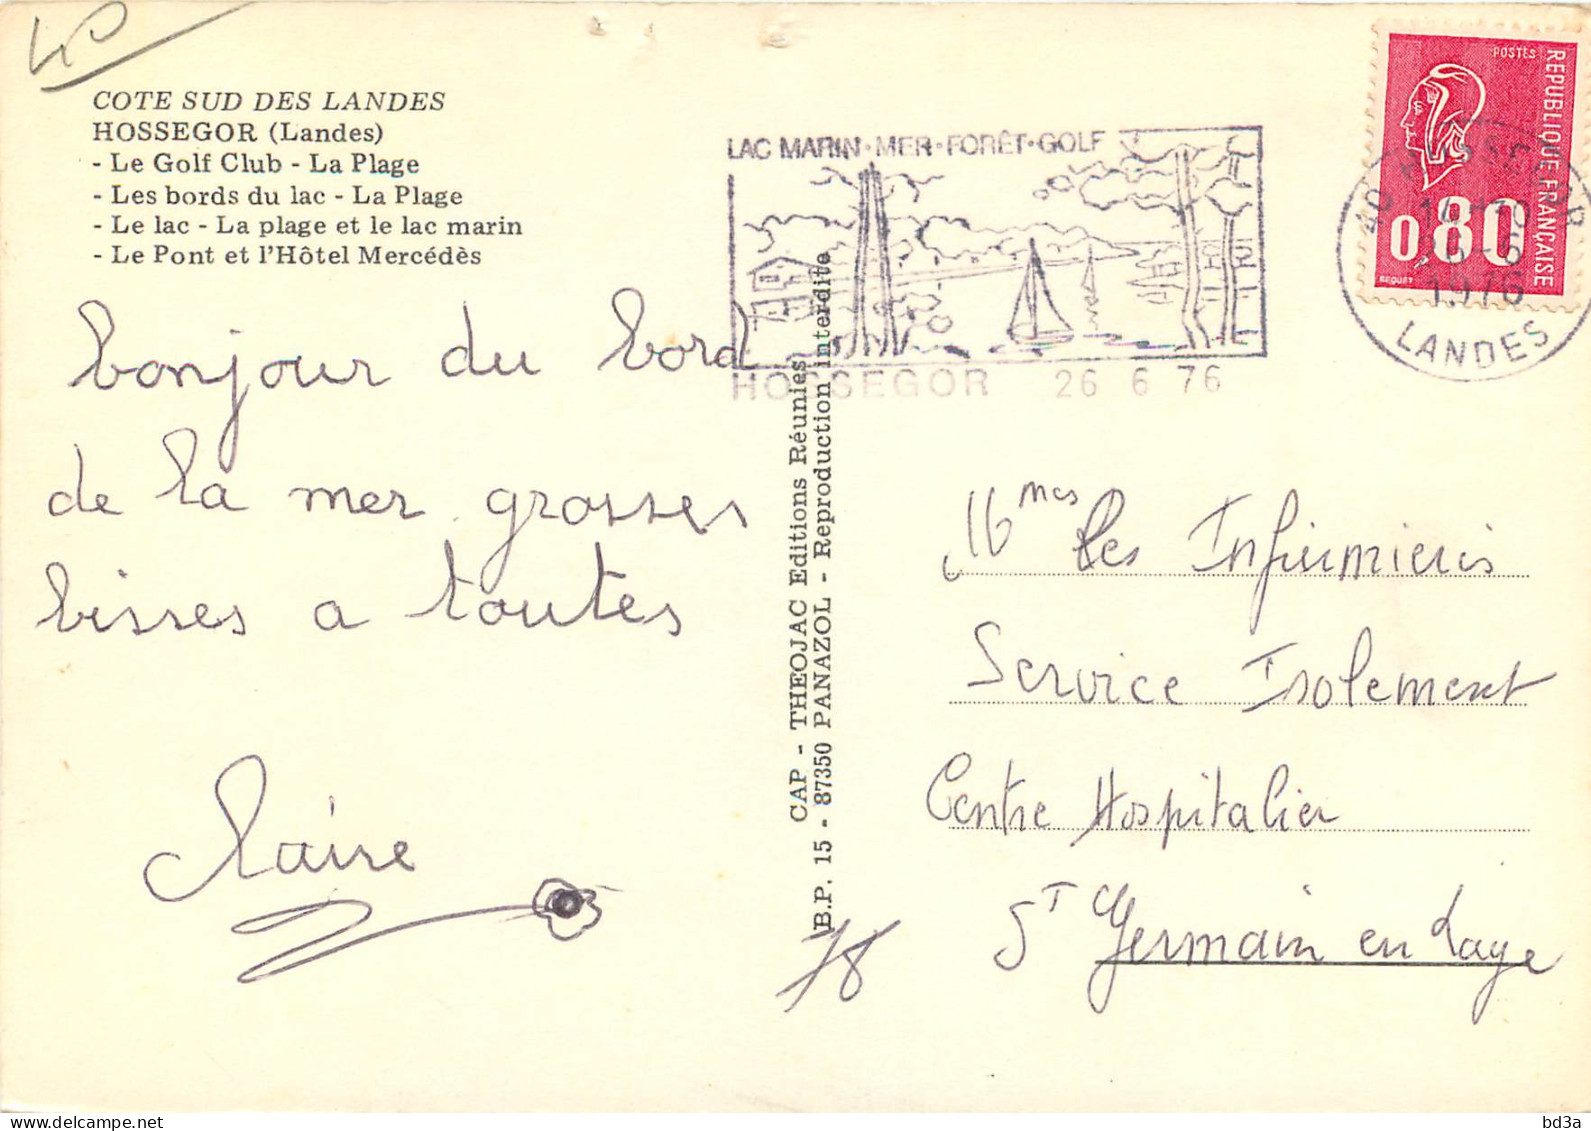 40
COTE SUD DES LANDES
HOSSEGOR (Landes)
- Le Golf Club - La Plage
- Les bords du lac - La Plage
- Le lac - La plage et le lac marin
- Le Pont et l'Hôtel Mercédès
LAC MARIN·MER·FORÊT·GOLF
HOSSEGOR 26 6 76
POSTES
REPUBLIQUE FRANÇAISE
0,80
BEQUET
40 HOSSEGOR
26-6
1976
LANDES
bonjour du bord
de la mer grosses
bisses a toutes
Claire
CAP - THEOJAC Editions Réunies
B.P. 15 - 87350 PANAZOL - Reproduction interdite
Mmes les Infirmieris
Service Isolement
Centre Hospitalier
ST Germain en Laye
78
delcampe.net
bd3a